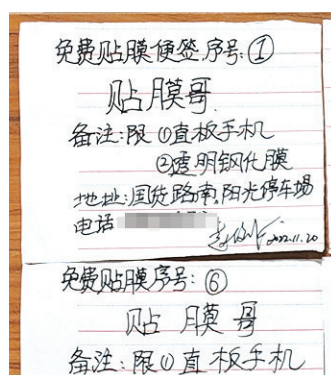 免费贴膜便签.序号:①
贴膜哥.
备注:限①直板手机
②透明钢化膜
地址:国货路南,阳光停车场
电话
2022.11.20
免费贴膜序号:⑥
贴膜哥
备注:限①直板手机